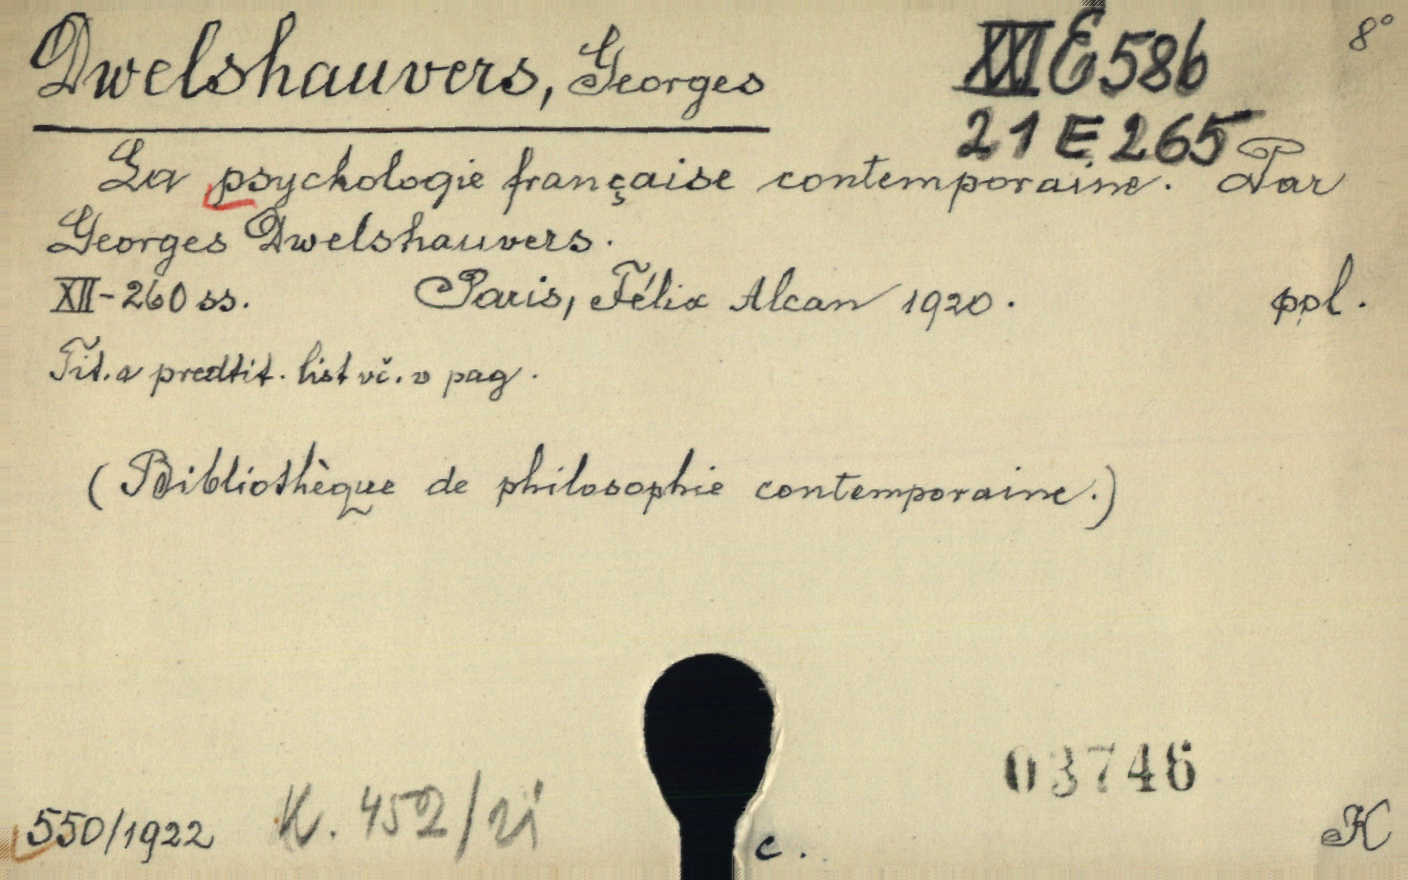 8°
Dwelshauvers, Georges
XXI E 586
21 E 265
La psychologie française contemporaine. Par
Georges Dwelshauvers.
XII-260 ss. Paris, Félix Alcan 1920. ppl.
Tit. a predtit. list vč. v pag.
(Bibliothèque de philosophie contemporaine.)
03746
550/1922 K. 452/21 c. K